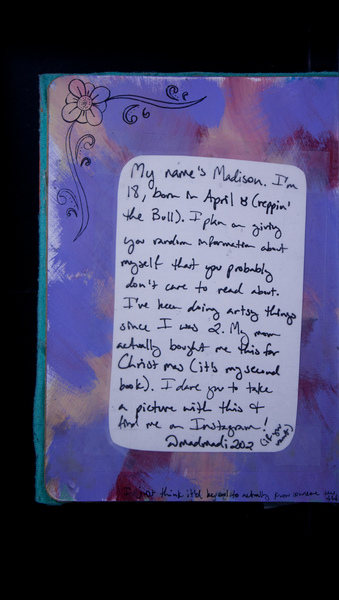 My name's Madison. I'm
18, born in April & (reppin'
the Bull). I plan on giving
you random information about
myself that you probably
don't care to read about.
I've been doing artsy things
since I was 2. My mom
actually bought me this for
Christmas (it's my second
book). I dare you to take
a picture with this &
find me on Instagram!
@madmadi202 (if you want)
I just think it'd be actually from someone